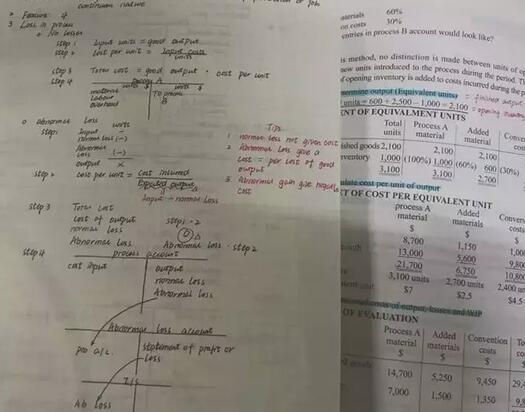 continuous nature
> Feature: 4
3 Loss in process
o No losses
step 1 Input units = good output
step 2 cost per unit = Input costs
units
step 3 Total cost = good output · cost per unit
step 4 Process A
units $ units $
material
Labour
overhead
To process
B
o abnormal Loss
units
step 1 Input
normal loss (-)
Abnormal
Loss (-)
output x
step 2 cost per unit = cost incurred
Expected output
Input - normal Loss
step 3 Total cost
cost of output
normal loss
Abnormal Loss
step 1 · 2
Abnormal Loss · step 2
step 4 process account
cost input
output
normal loss
Abnormal Loss
Abnormal Loss account
pro a/c.
statement of profit or
Loss
I/S
Ab loss
Tips
1 normal loss not given cost
2 Abnormal Loss give a
cost = per cost of good
output
3. Abnormal gain give
cost
materials 60%
costs 30%
entries in process B account would look like?
is method, no distinction is made between units of
new units introduced to the process during the period.
opening inventory is added to costs incurred during the
output (Equivalent units) = finished output
units = 600 + 2,500 – 1,000 = 2,100
ENT OF EQUIVALMENT UNITS
Total Process A Added
units material materials costs
goods 2,100 2,100 2,100
1,000 (100%) 1,000 (60%) 600 (30%)
3,100 3,100 2,700
cost per unit of output
OF COST PER EQUIVALENT UNIT
process A Added
material materials
$ $
8,700 1,150
13,000 5,600
21,700 6,750
3,100 units 2,700 units
$7 $2.5
costs of output, losses and WIP
OF EVALUATION
Process A Added Convention
material materials costs
$ $ $
14,700 5,250 9,450
7,000 1,500 1,350